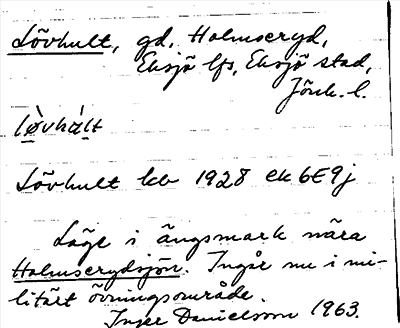 Lövhult, gd, Holmseryd,
Eksjö lfs, Eksjö stad,
Jönk. l.
lø̀vhál̀t
Lövhult kb 1928 ek 6E9j
Läge i ängsmark nära
Holmserydsjön. Ingår nu i mi-
litärt övningsområde.
Inger Danielsson 1963.